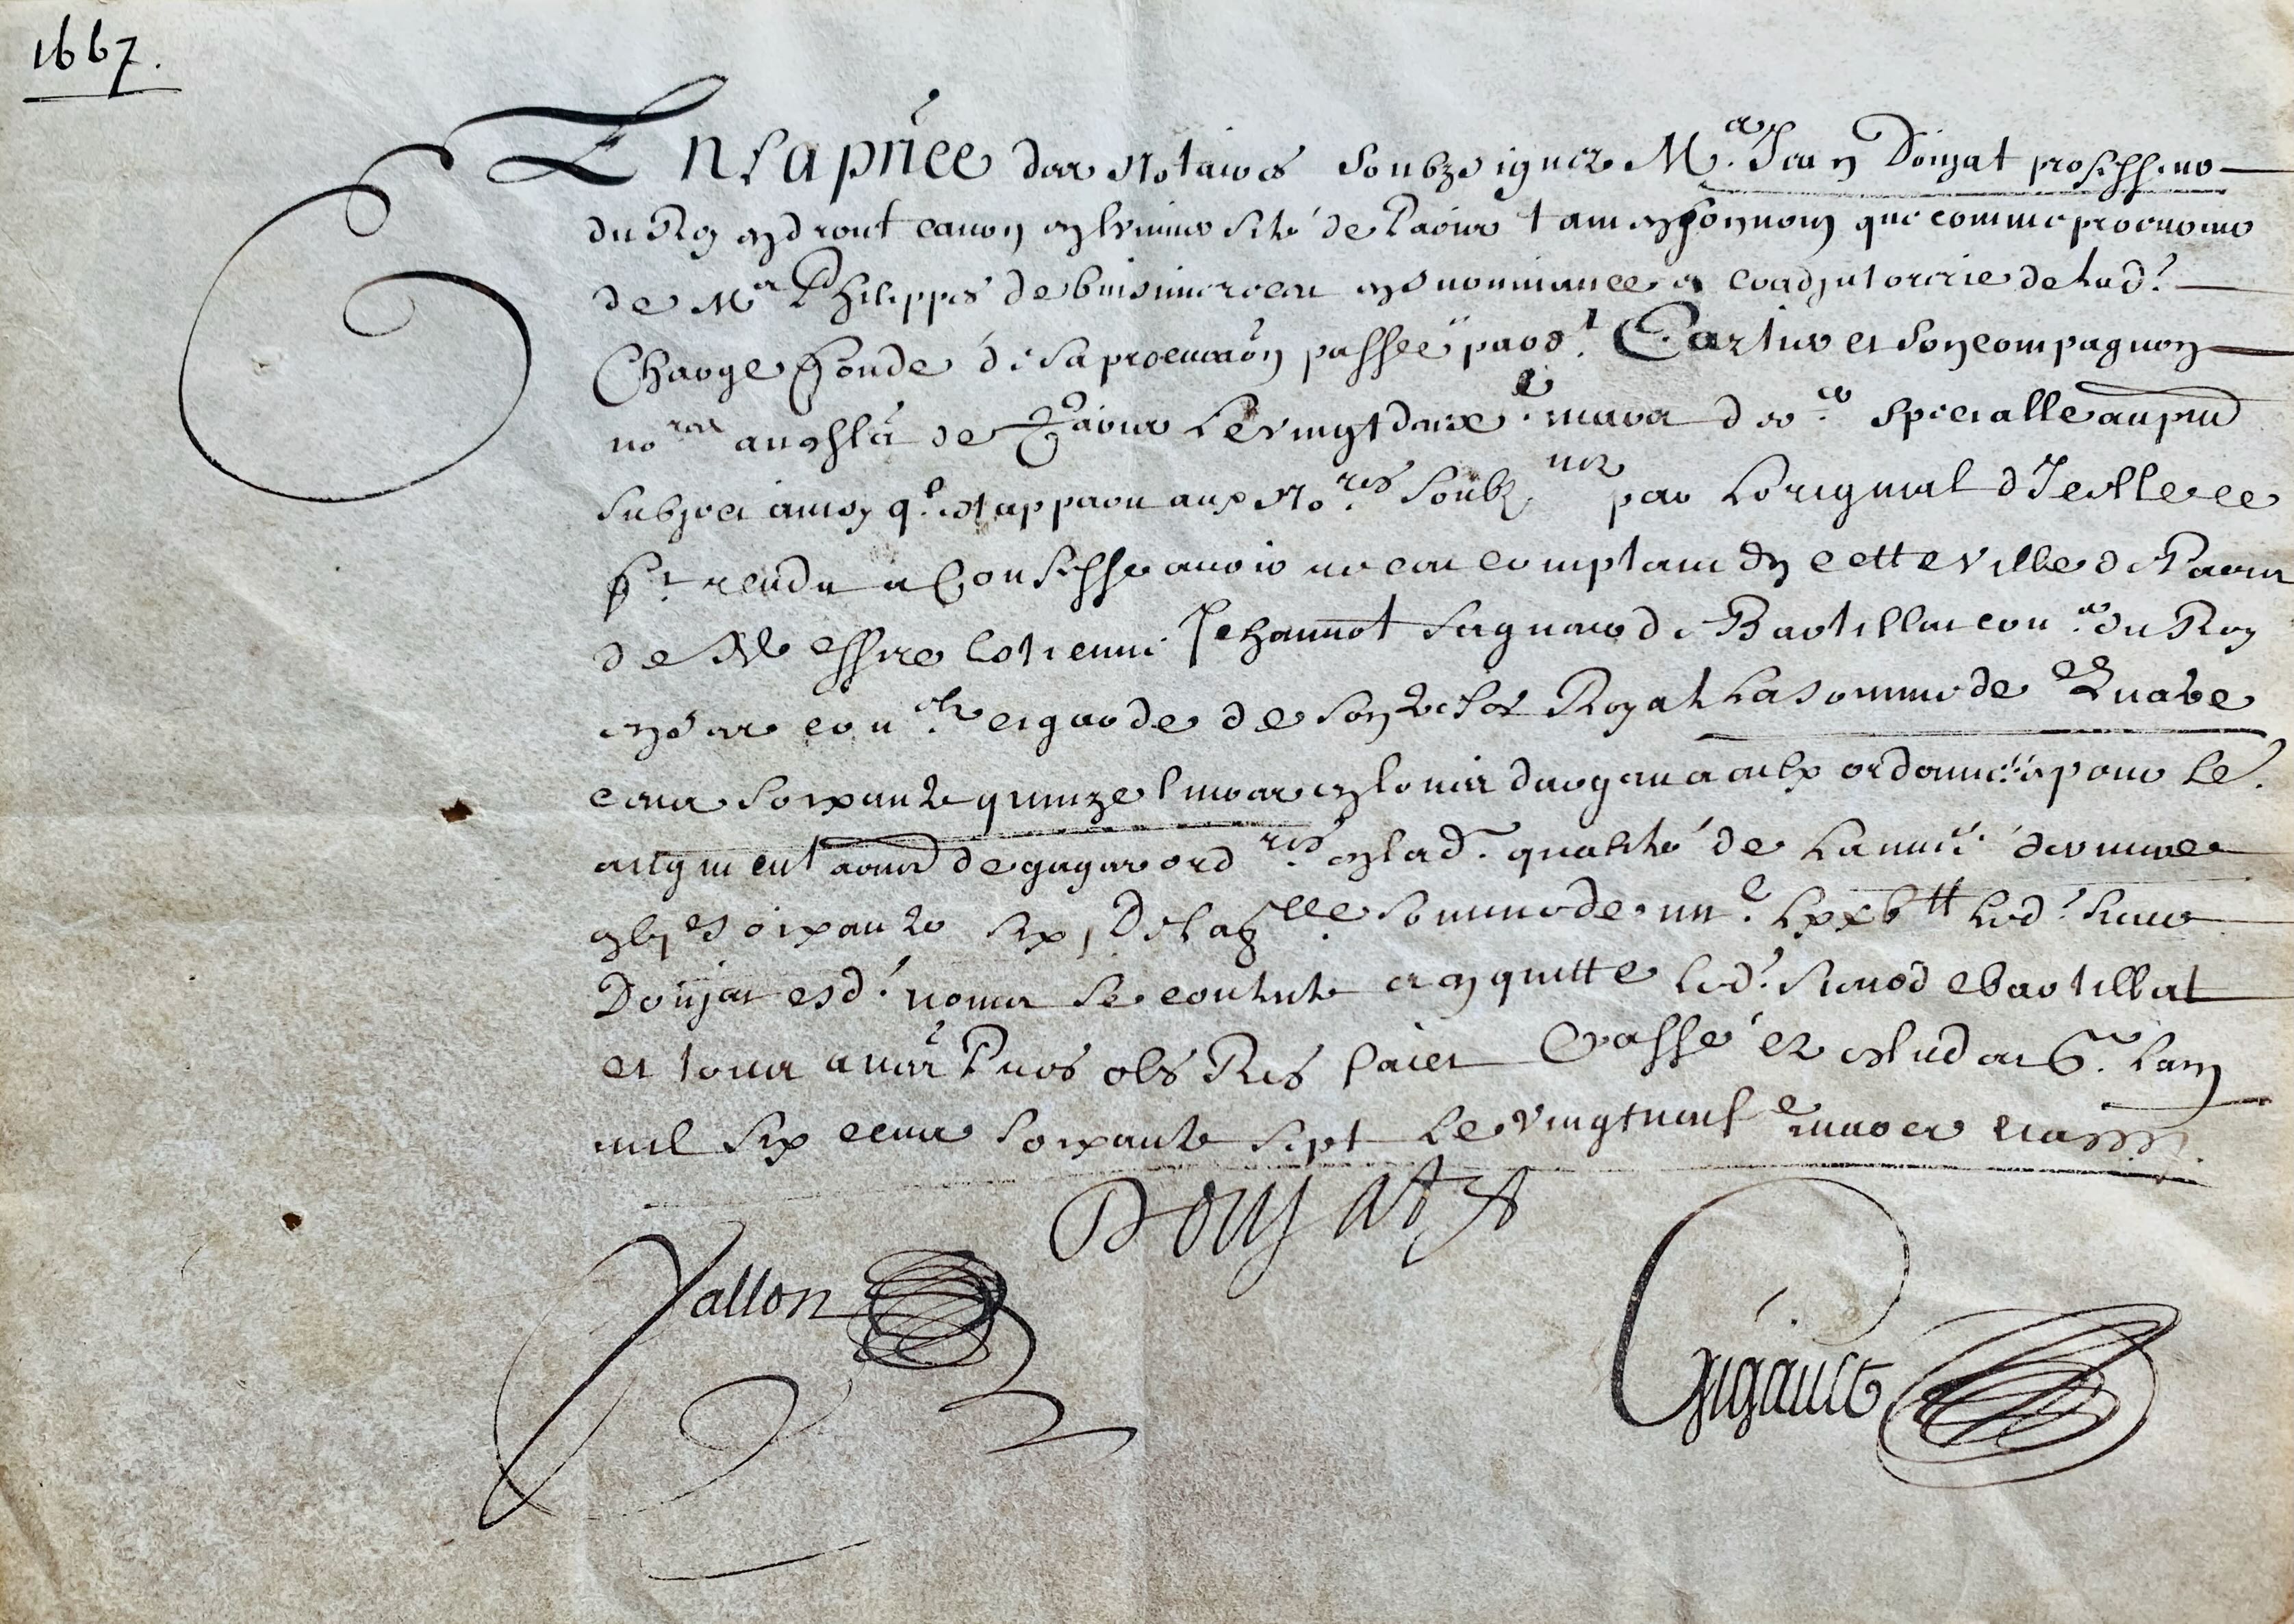 1667.
En la pñce des Notaires soubzsignez Me. Jean Doujat professeur
du Roy en droict canon en lvniversité de Paris tant en son nom que comme procureur
de Mr Philippes de buisine receu en survivance et coadjutorerie de lad.
Charge fondé de sa procuraõn passée pard.t et son compagnon
nores au chlet de Paris Le vingt deuxe. mars der. specialle au pnt
subject ainsy ql. est apparu aux Nores. soubz.nez par Loriginal d'Icelle ce
ft. rendu a Confessé avoir receu comptant En cette ville de Paris
de Messire Estienne Jehannot seigneur de Bartillat conr. du Roy
en ses conlz. et garde de son Tresor Royal La somme de Quatre
cens soixante quinze livres en louis dargent a eulx ordonnée pour Le
augmentaon de gages ordres. en lad. qualité de Lannée derniere
gbic soixante six, De laqlle. somme de iiiic. Lxxv tt Led. sieur
Doujat esd. noms se contente et en quitte led. sieur de bartillat
et tous aues Pnes obl Res faict Et passé es estudes Lan
mil six cens soixante sept Le vingt neuf
Doujat
Vallon
Gigault